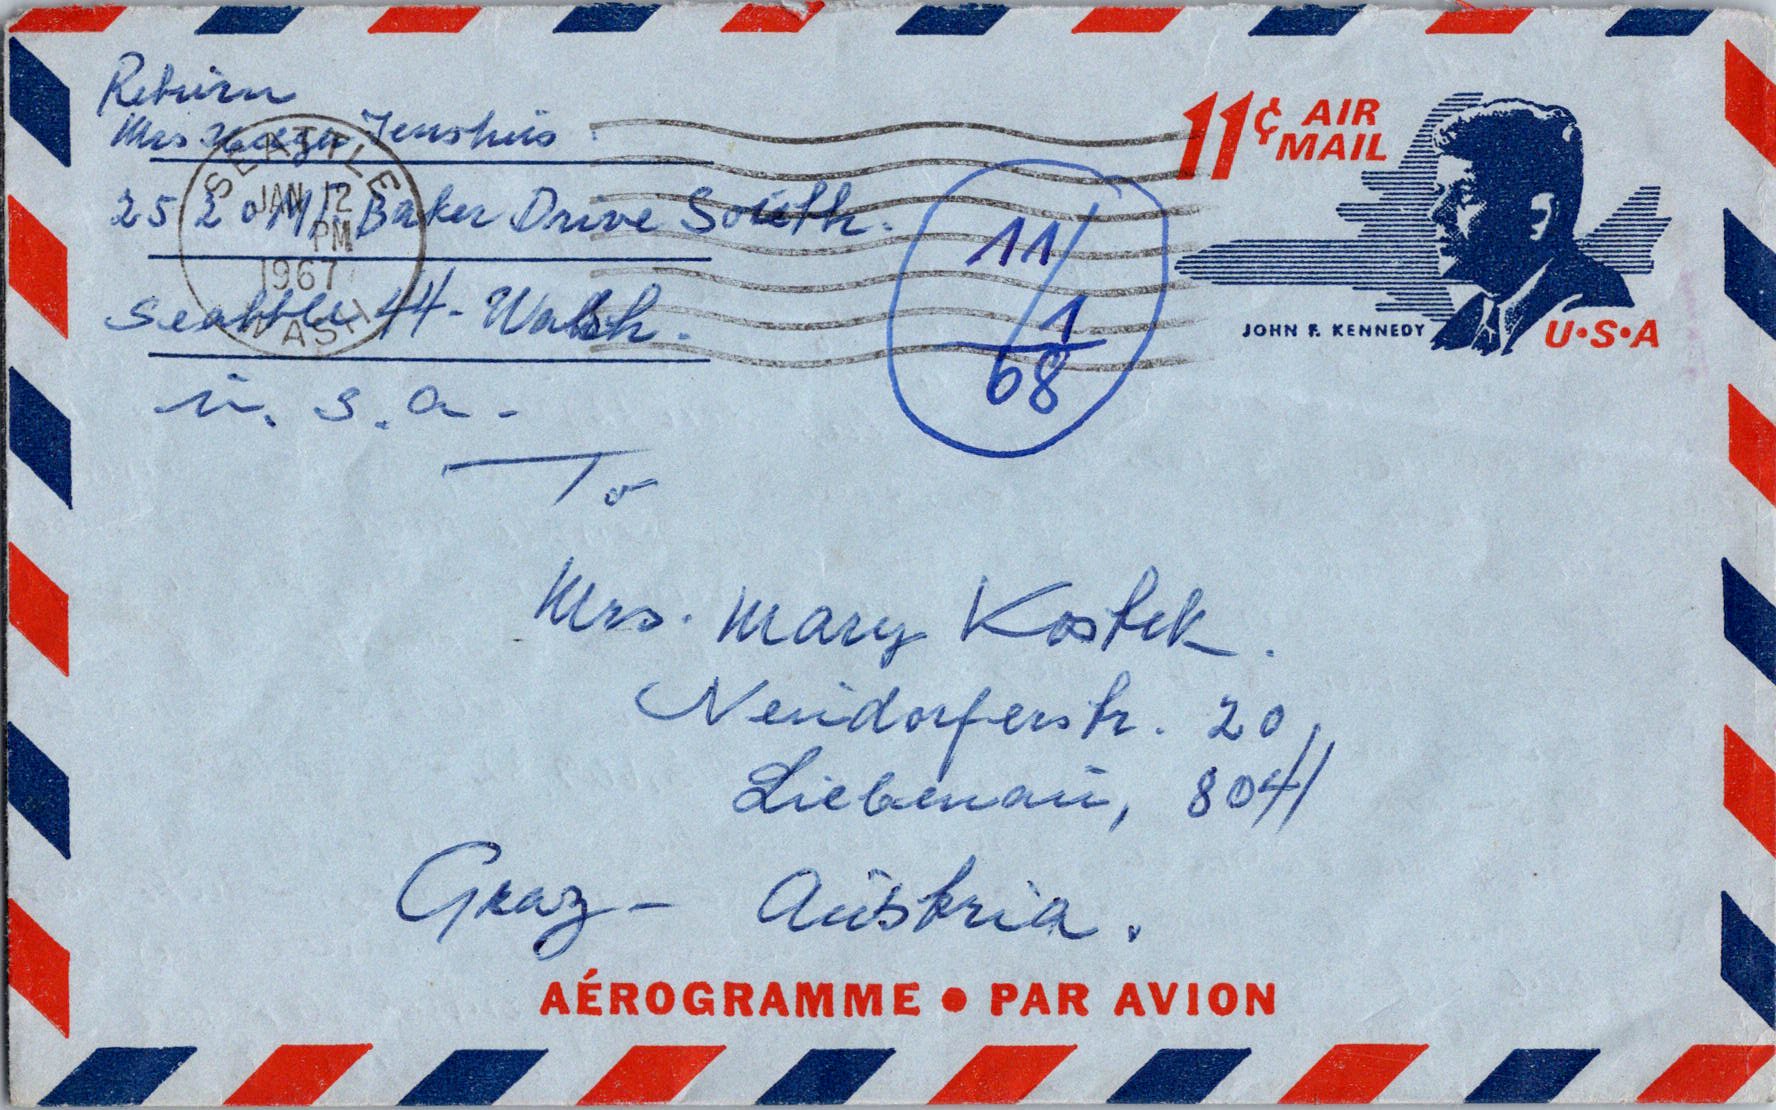 Return
Mrs Jenshus
2520 Baker Drive South.
Seattle 44 - Wash.
U. S. A -
SEATTLE
JAN 12
PM
1967
WASH
11/1
68
11¢ AIR
MAIL
JOHN F. KENNEDY
U•S•A
To
Mrs. Mary Kostek.
Neudorferstr. 20,
Liebenau, 8041
Graz - Austria.
AÉROGRAMME • PAR AVION